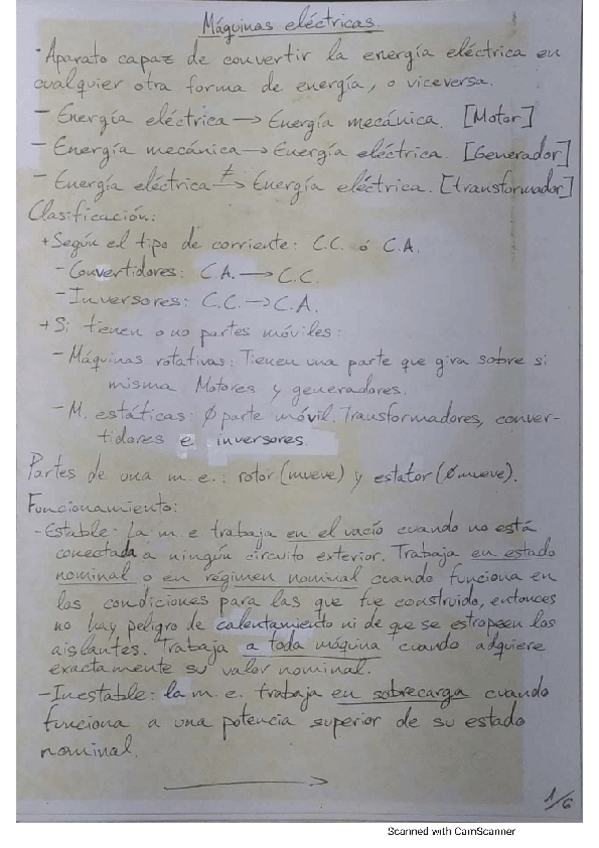 Máquinas eléctricas.
· Aparato capaz de convertir la energía eléctrica en
cualquier otra forma de energía, o viceversa.
- Energía eléctrica → Energía mecánica. [Motor]
- Energía mecánica → Energía eléctrica. [Generador]
- Energía eléctrica →≠ Energía eléctrica. [transformador]
Clasificación:
+ Según el tipo de corriente: C.C. ó C.A.
- Convertidores: C.A. → C.C.
- Inversores: C.C. → C.A.
+ Si tienen o no partes móviles:
- Máquinas rotativas: Tienen una parte que gira sobre si
misma Motores y generadores.
- M. estáticas: Ø parte móvil. Transformadores, conver-
tidores e inversores.
Partes de una m.e.: rotor (mueve) y estator (Ø mueve).
Funcionamiento:
- Estable: La m.e trabaja en el vacío cuando no está
conectada a ningún circuito exterior. Trabaja en estado
nominal o en régimen nominal cuando funciona en
las condiciones para las que fue construido, entonces
no hay peligro de calentamiento ni de que se estropeen los
aislantes. Trabaja a toda máquina cuando adquiere
exactamente su valor nominal.
- Inestable: la m.e. trabaja en sobrecarga cuando
funciona a una potencia superior de su estado
nominal.
1/6
Scanned with CamScanner